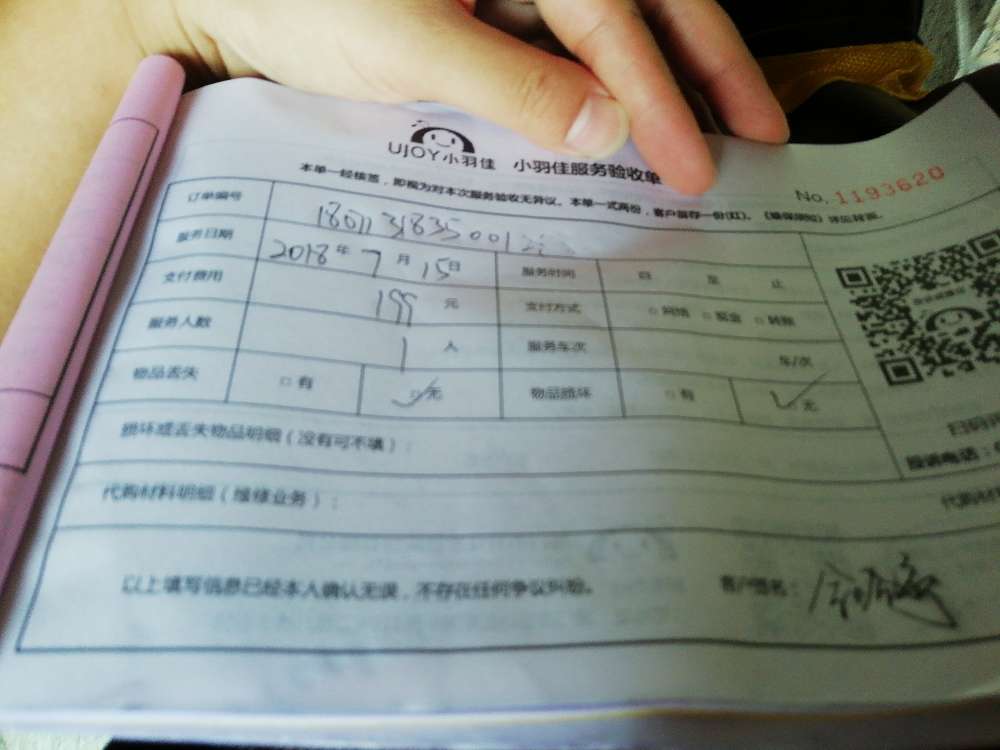 UJOY小羽佳 小羽佳服务验收单
No. 1193620
本单一经核签，即视为对本次服务验收无异议。本单一式两份，客户留存一份(红)。
订单编号
服务日期 2018年7月15日 服务时间 自 至 止
支付费用 199 元 支付方式 □ 网络 □ 现金 □ 转账
服务人数 1 人 服务车次 车/次
物品丢失 □ 有 ☑ 无 物品损坏 □ 有 ☑ 无
损坏或丢失物品明细（没有可不填）：
代购材料明细（维修业务）：
以上填写信息已经本人确认无误，不存在任何争议纠纷。 客户签名：